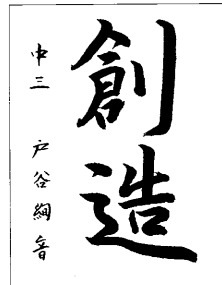 創造
中三 戸谷絢音